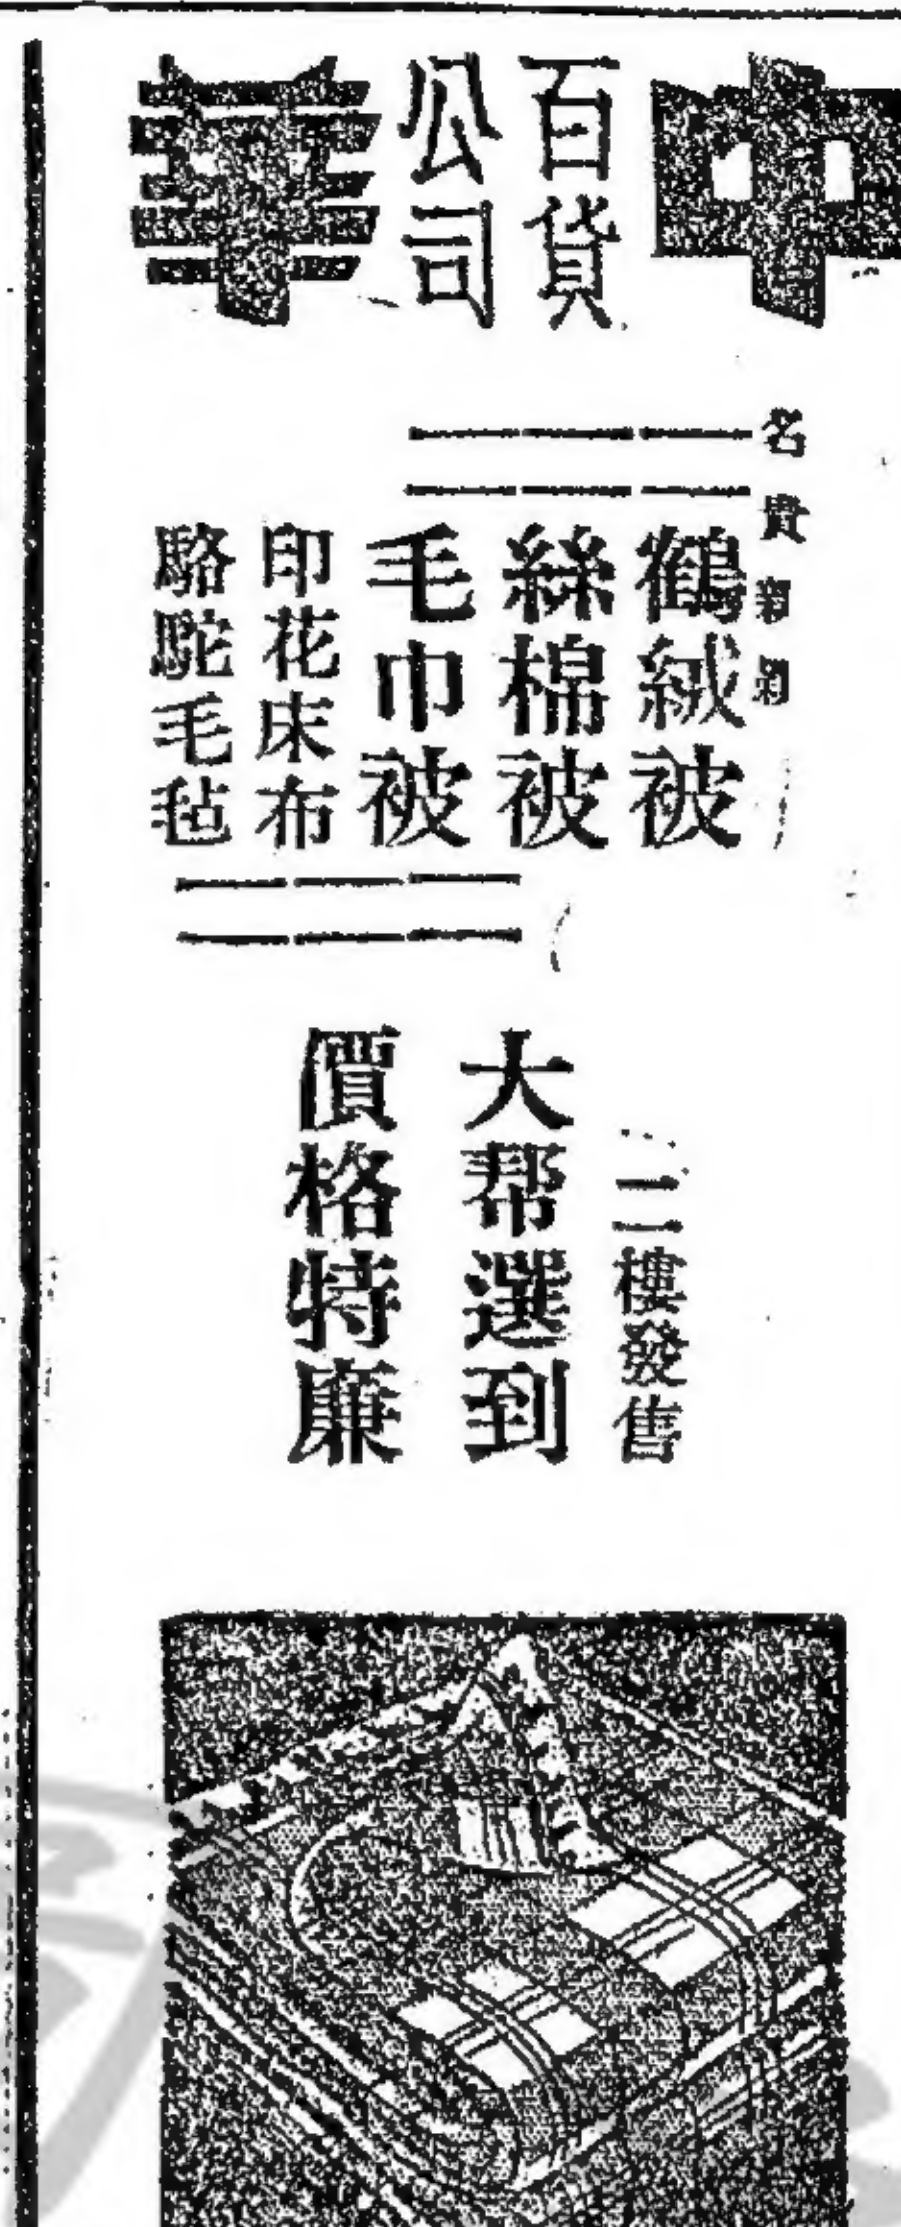 中
百貨
公司
華
名貴新穎
鶴絨被
絲棉被
毛巾被
印花床布
駱駝毛毡
二樓發售
大帮選到
價格特廉